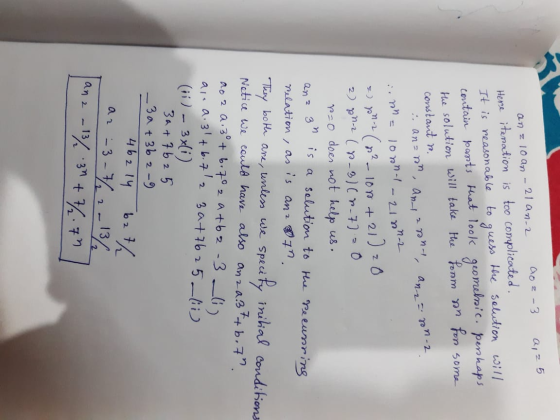 an = 10an - 21an-2 a0 = -3 a1 = 5
Here iteration is too complicated.
It is reasonable to guess the solution will
contain parts that look geometric. perhaps
the solution will take the form r^n for some
constant r.
∴ an = r^n, an-1 = r^n-1, an-2 = r^n-2.
∴ r^n = 10r^n-1 - 21r^n-2
=) r^n-2 (r^2 - 10r + 21) = 0
=) r^n-2 (r-3)(r-7) = 0
r = 0 does not help us.
an = 3^n is a solution to the recurring
relation, as is an = 7^n.
They both are unless we specify initial conditions
Notice we could have also an = a3^n + b.7^n.
a0 = a.3^0 + b.7^0 = a + b = -3 —(i)
a1 = a.3^1 + b.7^1 = 3a + 7b = 5 —(ii)
(ii) - 3×(i)
3a + 7b = 5
-3a + 3b = -9
4b = 14 b = 7/2
a = -3 - 7/2 = -13/2
an = -13/2 . 3^n + 7/2 . 7^n